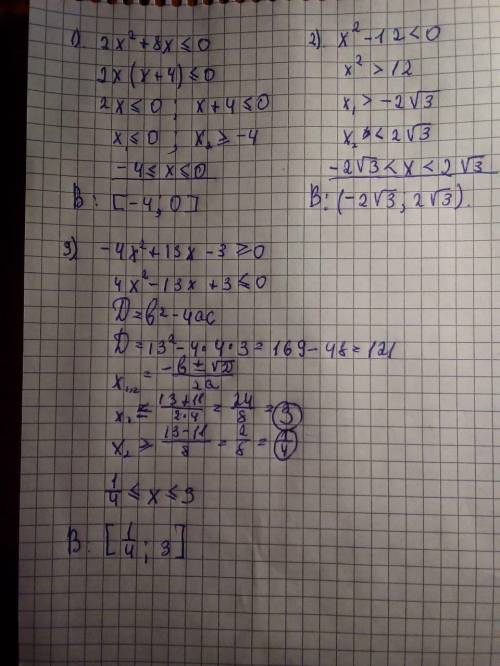 1). 2x² + 8x ≤ 0
2x(x+4) ≤ 0
2x ≤ 0 ; x+4 ≤ 0
x ≤ 0 ; x₂ ≥ -4
-4 ≤ x ≤ 0
В: [-4; 0]
2). x² - 12 < 0
x² > 12
x₁ > -2√3
x₂ < 2√3
-2√3 < x < 2√3
В: (-2√3; 2√3).
3) -4x² + 13x - 3 ≥ 0
4x² - 13x + 3 ≤ 0
D = b² - 4ac
D = 13² - 4·4·3 = 169 - 48 = 121
x₁,₂ = (-b ± √D)/2a
x₁ ≤ (13+11)/(2·4) = 24/8 = 3
x₂ ≥ (13-11)/8 = 2/8 = 1/4
1/4 ≤ x ≤ 3
В: [1/4; 3]